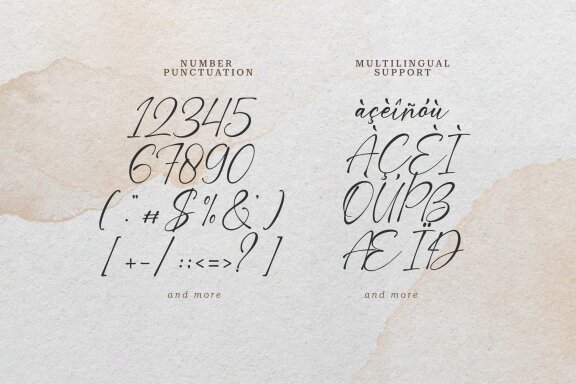 NUMBER
PUNCTUATION
12345
67890
( . " # $ % & ' )
[ + - / : ; < = > ? ]
and more
MULTILINGUAL
SUPPORT
àçèîñóù
ÀÇÈÌ
OÙPB
ÆÏÐ
and more